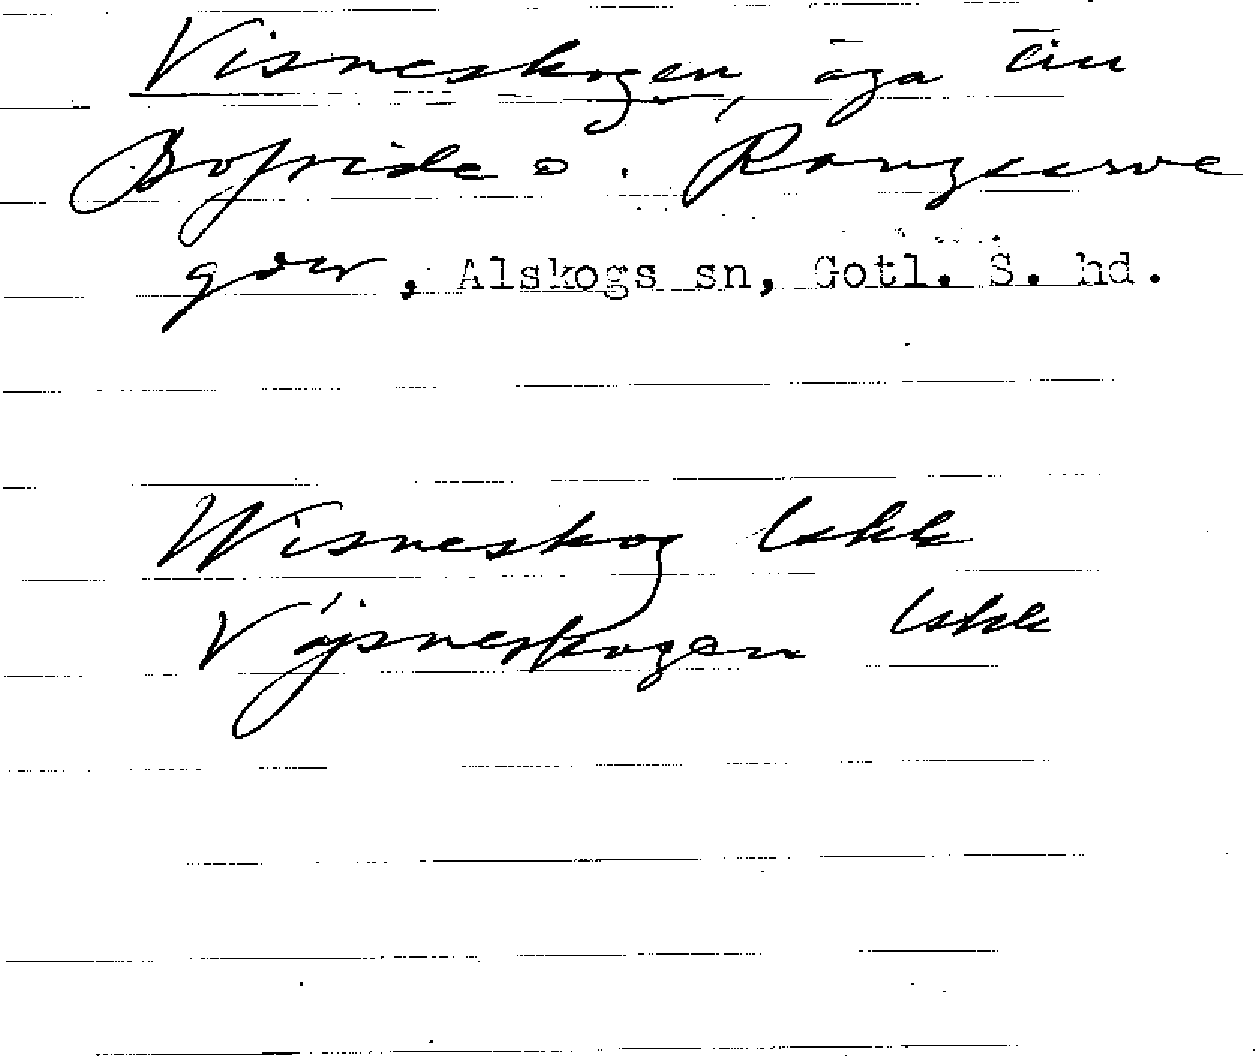 Visneskogen, äga till
Bofride o. Rangsarve
går, Alskogs sn, Gotl. S. hd.
Wisneskog lskk
Vöjsneskogen lskk